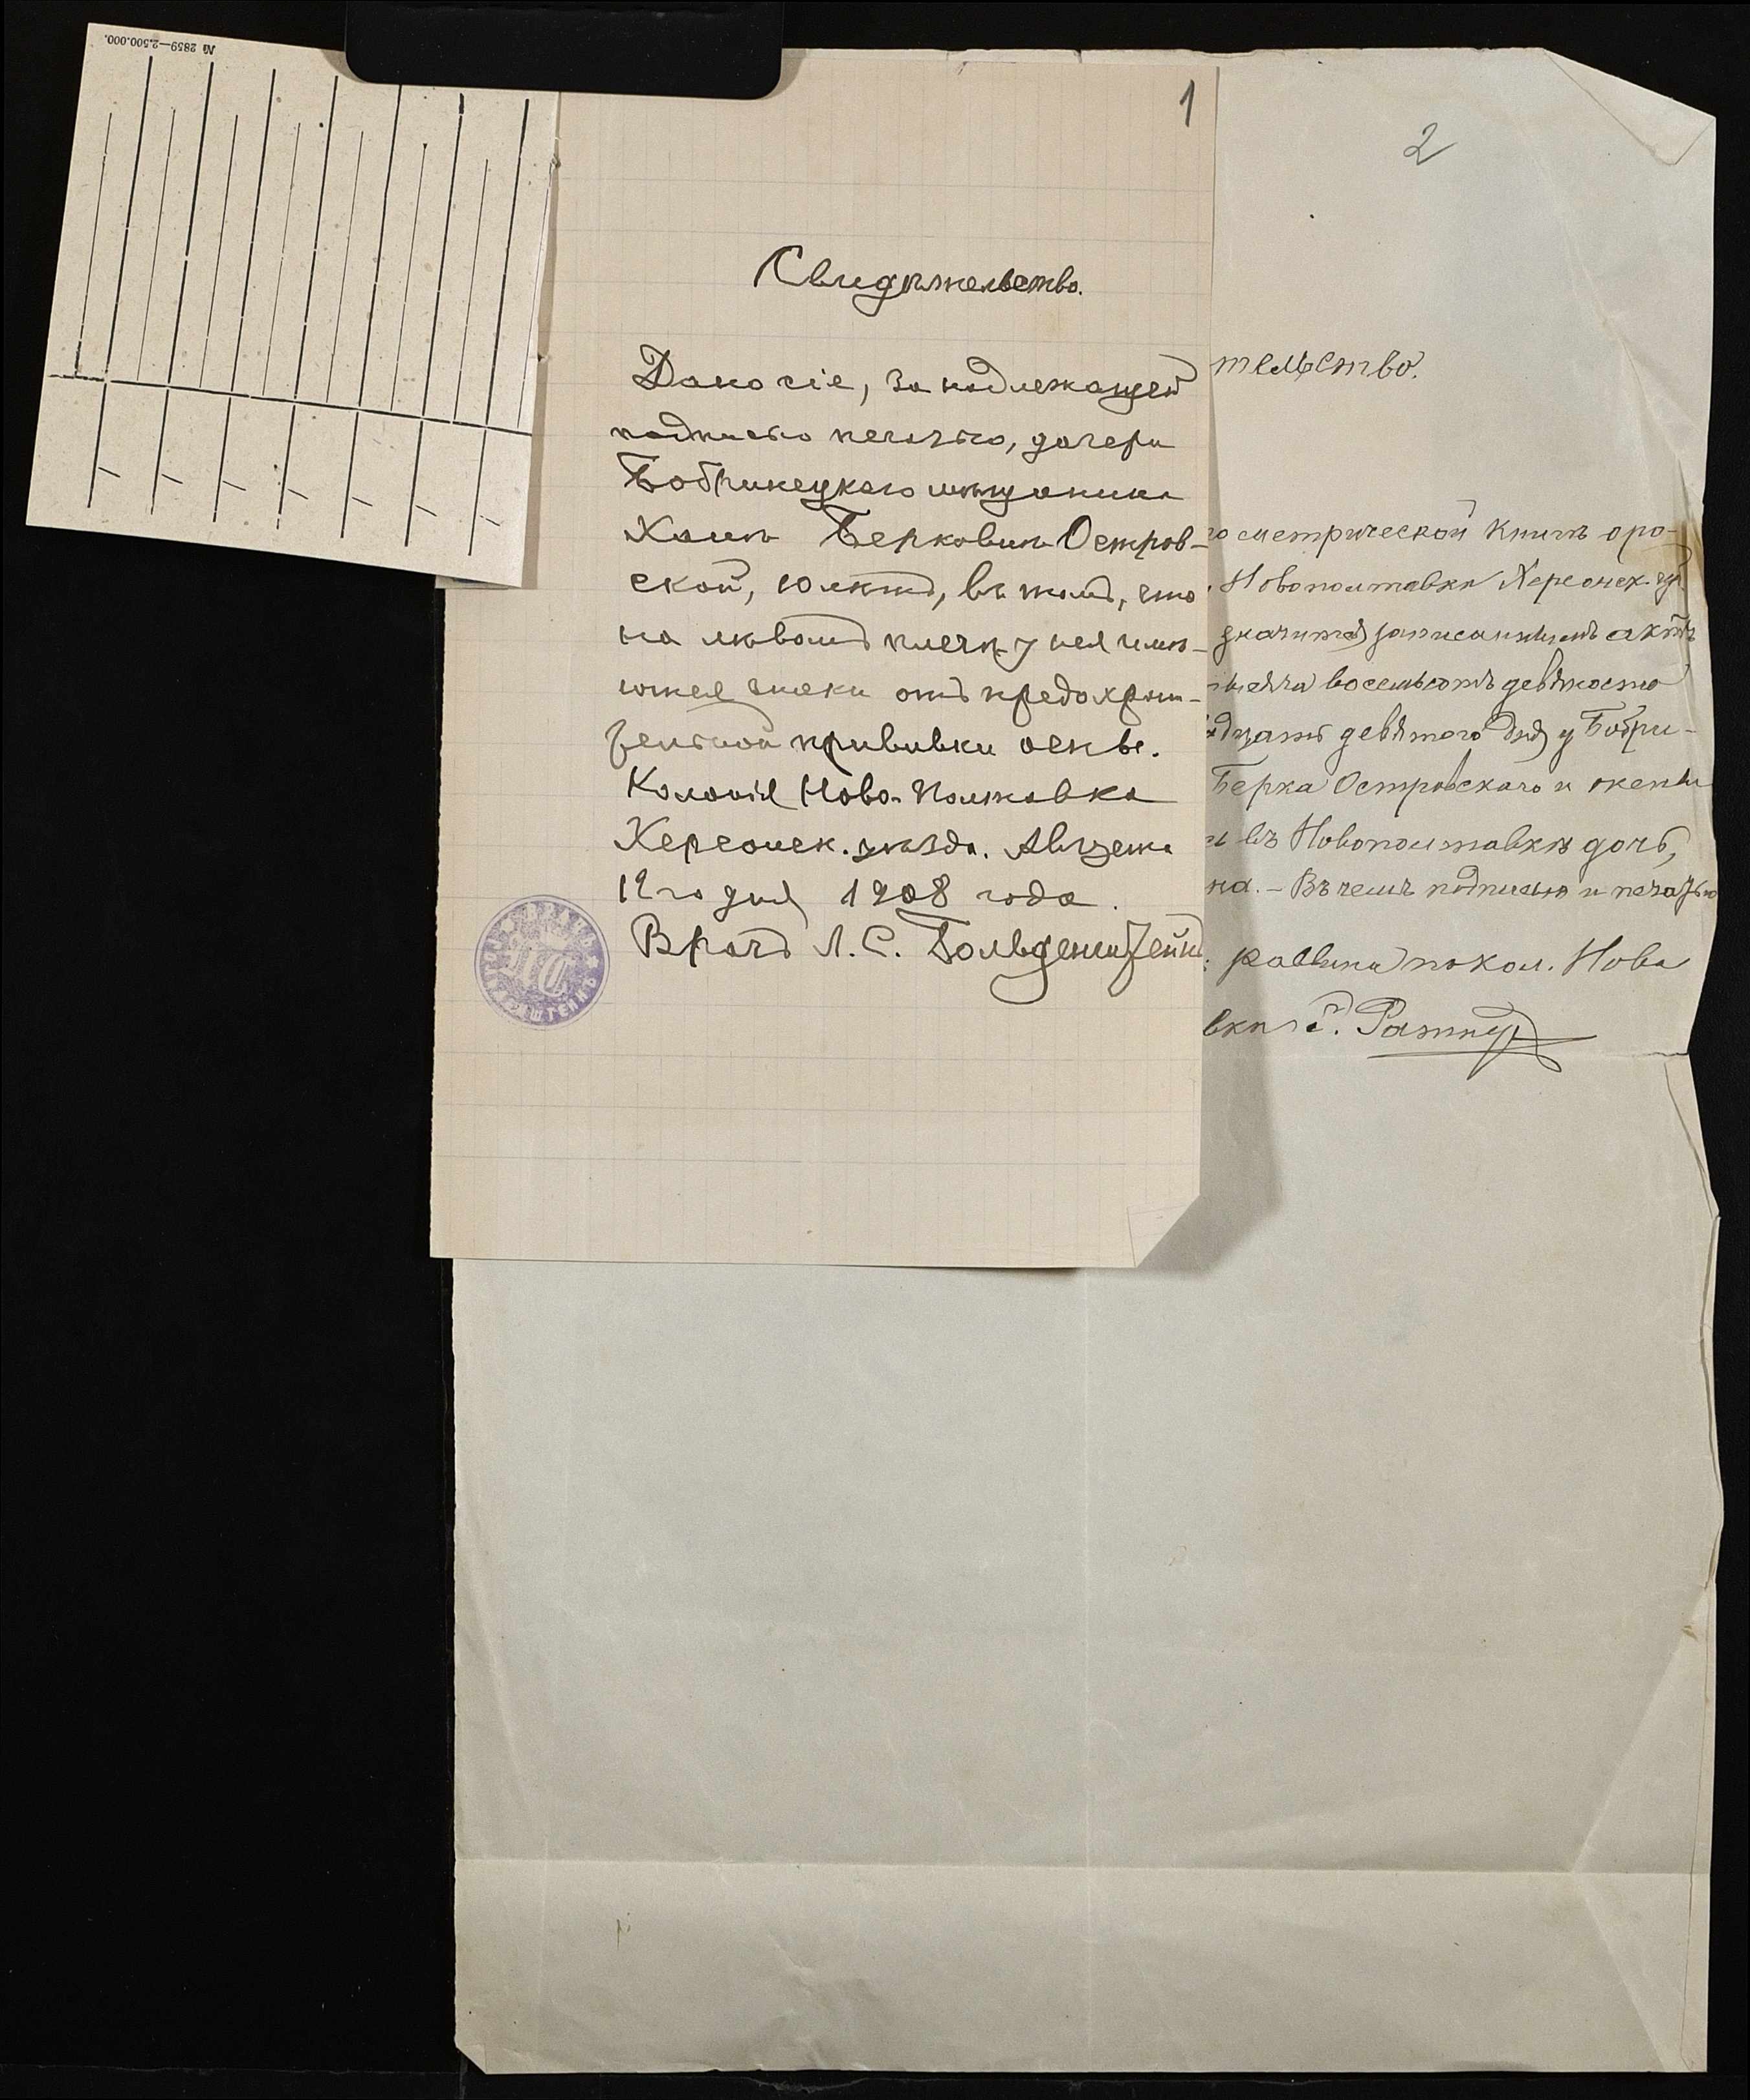 № 2859—2.500.000.
1
Свидѣтельство.
Дано сіе, за надлежащей
подписью печатью, дочери
Бобринецкаго мѣщанина
Хаѣ Берковнѣ Островской, 10 лѣтъ, въ томъ, что
на лѣвомъ плечѣ у нея имѣ-
ются знаки отъ предохрани-
тельной прививки оспы.
Колонія Ново-Полтавка
Херсонск. уѣзда. Августа
12го дня 1908 года.
Врачъ Л. С. Гольденштейнъ
2
тельство.
метрической книгѣ о ро-
Новополтавка Херсонск. уѣ.
значится записаннымъ актъ
тысяча восемьсотъ девяносто
дцать девятого дня у Бобри-
Берка Островскаго и жены
въ Новополтавкѣ дочь,
на. – Въ чемъ подписью и печатью
раввина по кол. Ново
вкѣ Ратнеръ